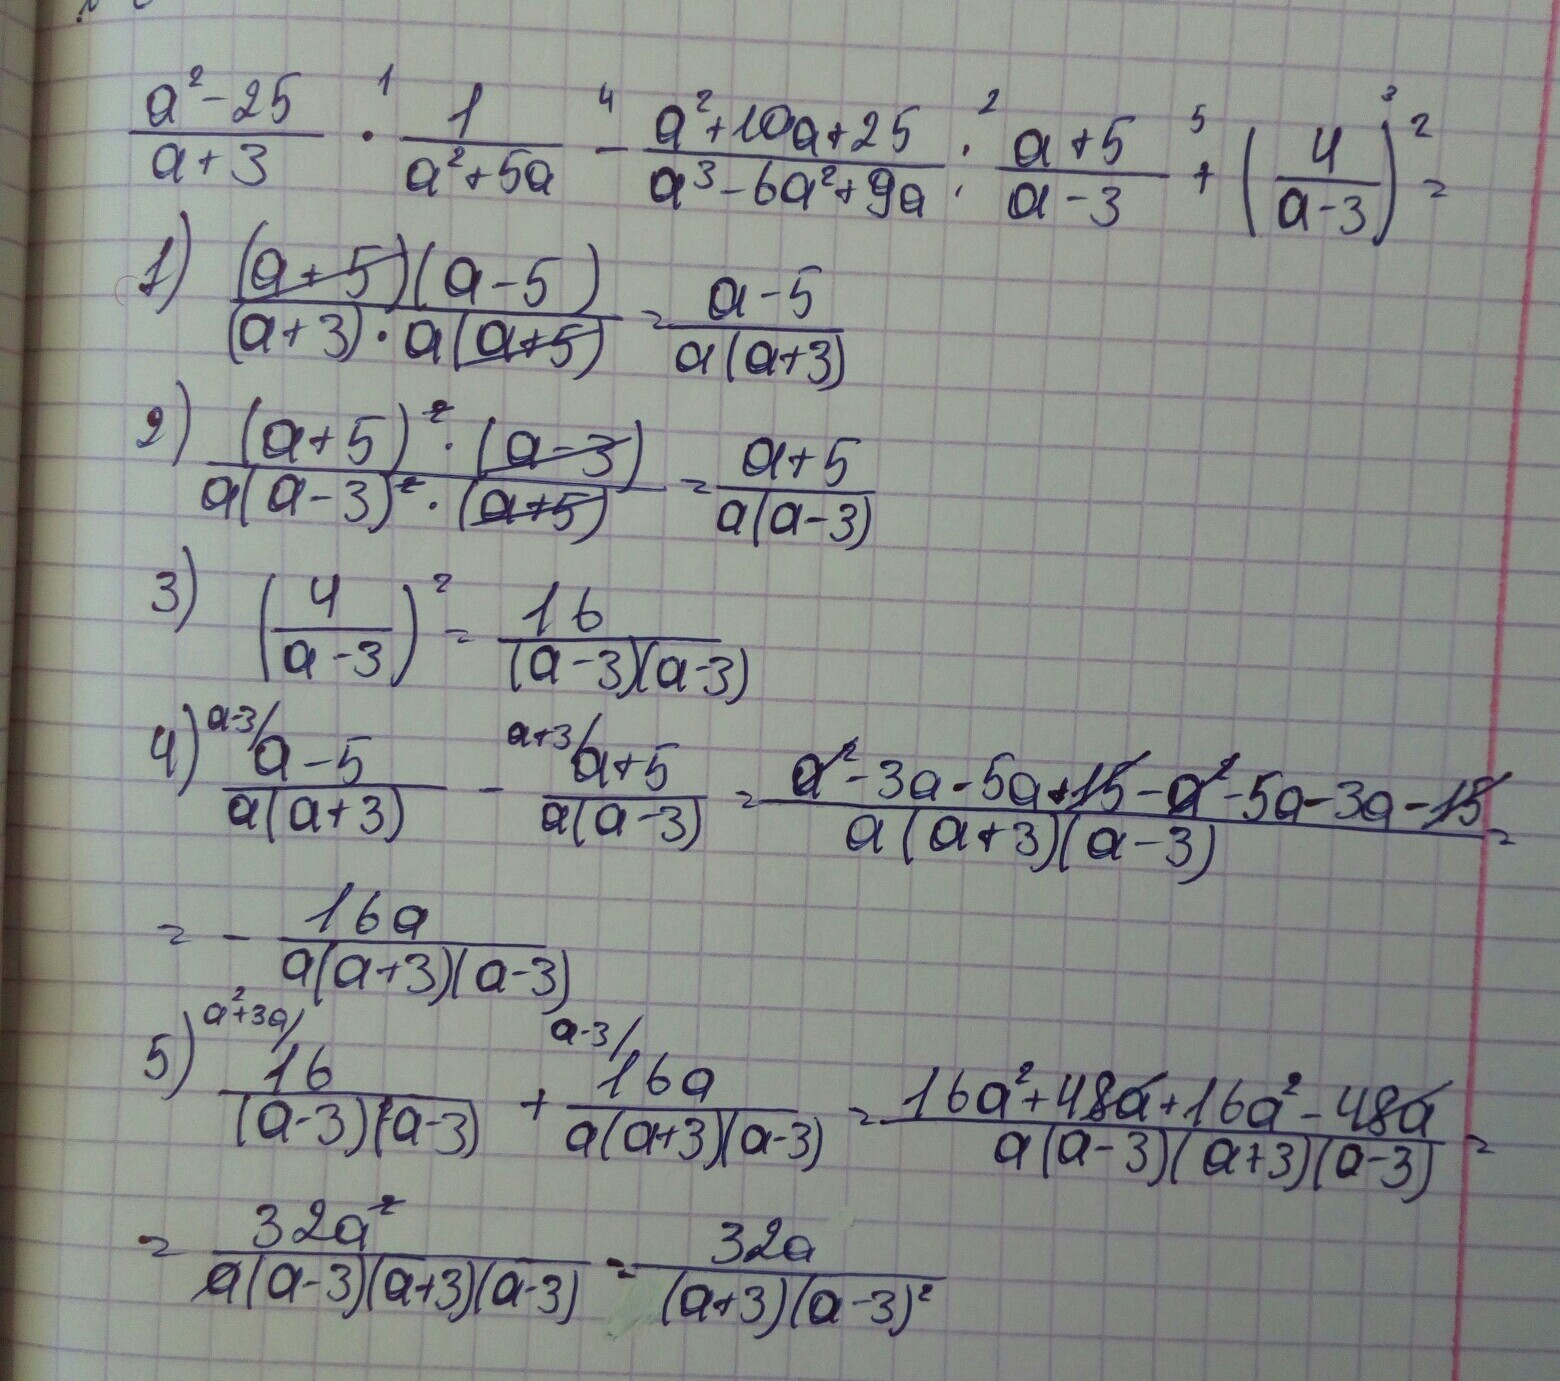 (a²-25)/(a+3) ·¹ 1/(a²+5a) -⁴ (a²+10a+25)/(a³-6a²+9a) :² (a+5)/(a-3) +⁵ (4/(a-3))²³ =
1) (a+5)(a-5)/((a+3)·a(a+5)) = (a-5)/(a(a+3))
2) (a+5)²·(a-3)/(a(a-3)²·(a+5)) = (a+5)/(a(a-3))
3) (4/(a-3))² = 16/((a-3)(a-3))
4) a-3/ (a-5)/(a(a+3)) - a+3/ (a+5)/(a(a-3)) = (a²-3a-5a+15-a²-5a-3a-15)/(a(a+3)(a-3)) =
= - 16a/(a(a+3)(a-3))
5) a²+3a/ 16/((a-3)(a-3)) + a-3/ 16a/(a(a+3)(a-3)) = (16a²+48a+16a²-48a)/(a(a-3)(a+3)(a-3)) =
= 32a²/(a(a-3)(a+3)(a-3)) = 32a/((a+3)(a-3)²)